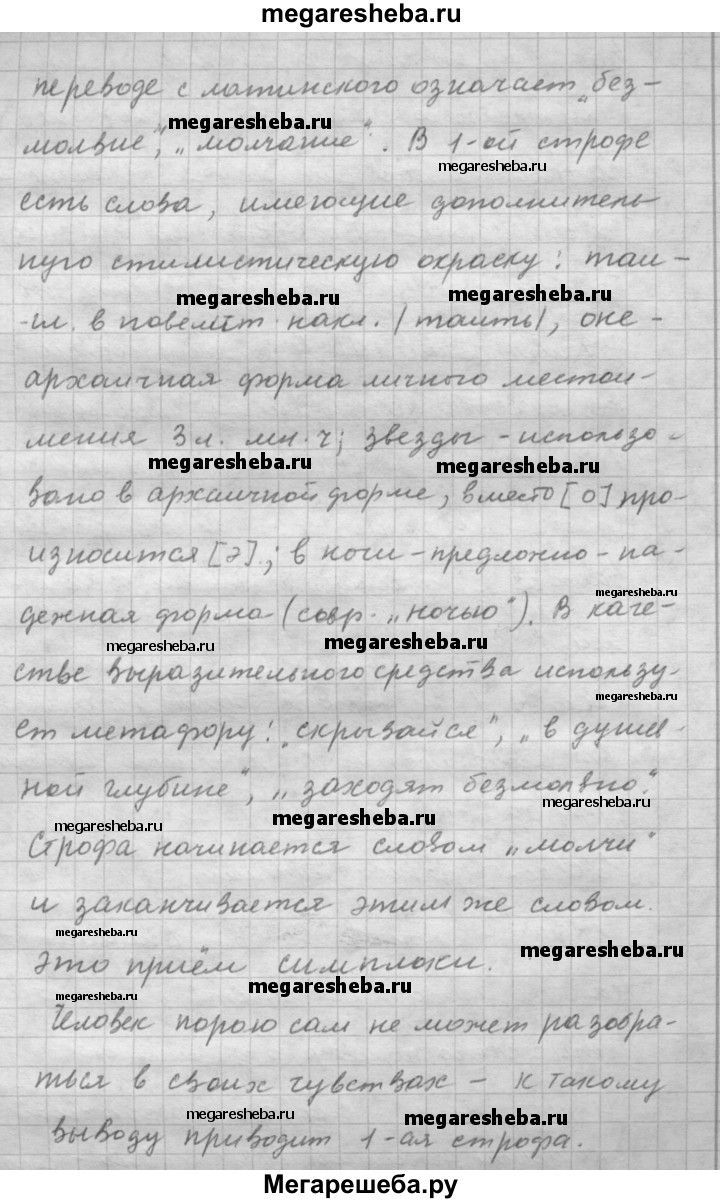 megaresheba.ru
переводе с латинского означает „без-
megaresheba.ru
молвие", „молчание". В 1-ой строфе
megaresheba.ru
есть слова, имеющие дополнитель
ную стилистическую окраску: таи -
megaresheba.ru
megaresheba.ru
-гл. в повелит. накл. /таить/, оне -
архаичная форма личного местои-
мения 3 л. мн. ч; звезды - использо-
megaresheba.ru
megaresheba.ru
вано в архаичной форме, вместо [о] про-
износится [э].; в ночи - предложно - па-
megaresheba.ru
дежная форма (совр. „ночью"). В каче-
megaresheba.ru
megaresheba.ru
стве выразительного средства использу-
megaresheba.ru
ет метафору: „скрывайся", „в душев-
ной глубине", „заходят безмолвно".
megaresheba.ru
megaresheba.ru
megaresheba.ru
Строфа начинается словом „молчи"
и заканчивается этим же словом.
megaresheba.ru
megaresheba.ru
Это приём симплоки.
megaresheba.ru
megaresheba.ru
Человек порою сам не может разобра-
ться в своих чувствах - к такому
megaresheba.ru
megaresheba.ru
выводу приводит 1-ая строфа.
Мегарешеба.ру